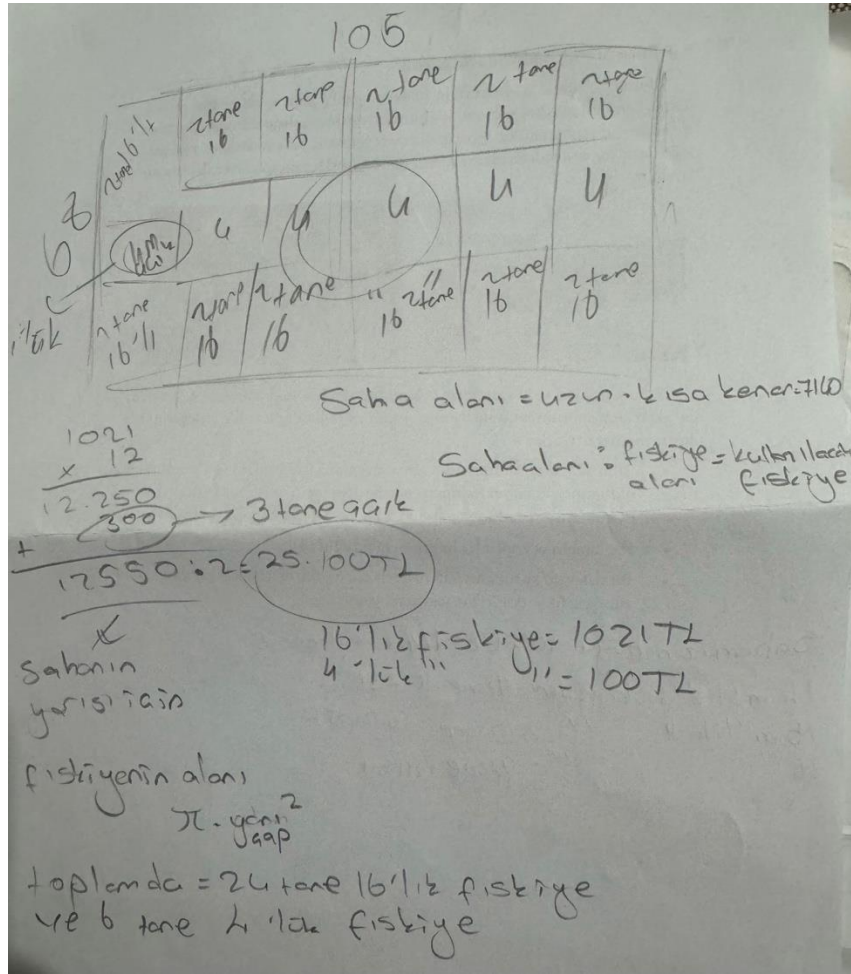 105
68
2 tane 16'lı
2 tane 16
2 tane 16
2 tane 16
2 tane 16
2 tane 16
4
4
4
4
4
4'lük
2 tane 16'lı
2 tane 16
2 tane 16
" 2 tane " 16
2 tane 16
2 tane 16
Saha alanı = uzun . kısa kenar = 7140
Saha alanı : fıskiye alanı = kullanılacak fıskiye
1021
x 12
12.250
300 → 3 tane açık
+
12550 : 2 = 25.100 TL
sahanın
yarısı için
16'lık fıskiye = 1021 TL
4'lük " " = 100 TL
fıskiyenin alanı
π . yarıçap²
toplamda = 24 tane 16'lık fıskiye
ve 6 tane 4'lük fıskiye